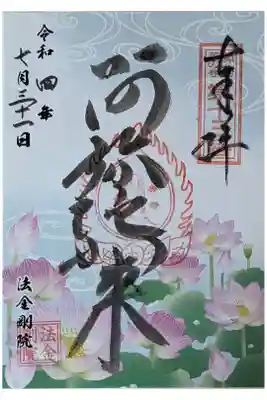 奉拝
阿弥陀如来
令和四年
七月三十一日
法金剛院